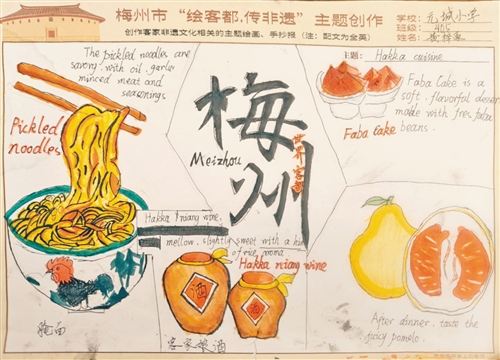 梅州市“绘客都.传非遗”主题创作
创作客家非遗文化相关的主题绘画、手抄报（注：配文为全英）
学校: 元城小学
班级: 405
姓名:
主题: Hakka cuisine
The pickled noodles are
savory with oil garlic
minced meat and
seasonings
Pickled
noodles
腌面
梅州
世界客都
Meizhou
Hakka niang wine,
mellow, slightly sweet with a hint
of rice aroma
Hakka niang wine
酒
酒
客家娘酒
Faba Cake is a
soft, flavorful dessert
made with fresh faba
beans.
Faba Cake
After dinner, taste the
juicy pomelo.